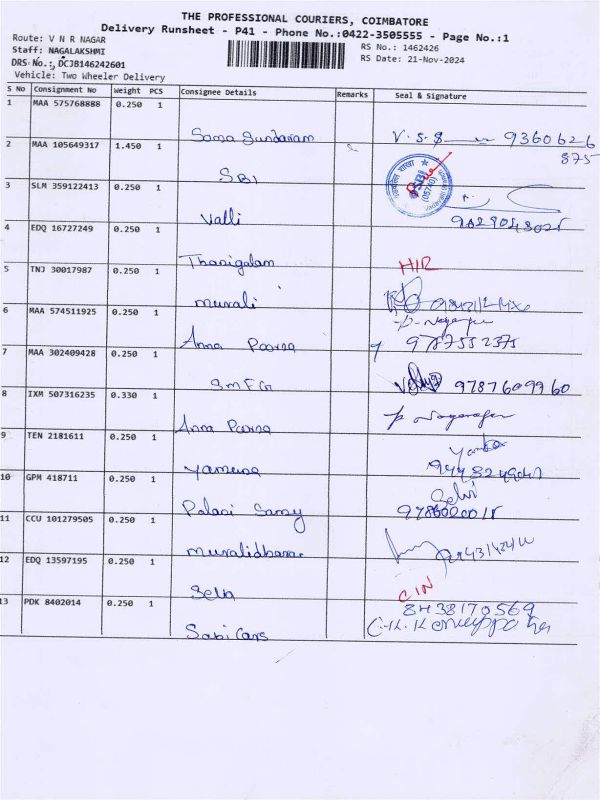 THE PROFESSIONAL COURIERS, COIMBATORE
Delivery Runsheet - P41 - Phone No.:0422-3505555 - Page No.:1
Route: V N R NAGAR
RS No.: 1462426
Staff: NAGALAKSHMI
RS Date: 21-Nov-2024
DRS No.: DCJB146242601
Vehicle: Two Wheeler Delivery
S No Consignment No Weight PCS Consignee Details Remarks Seal & Signature
1 MAA 575768888 0.250 1
V.S.S 9360626
875
2 MAA 105649317 1.450 1
SBI
SBI
3 SLM 359122413 0.250 1
Valli
4 EDQ 16727249 0.250 1
Thanigalam
5 TNJ 30017987 0.250 1
Murali
6 MAA 574511925 0.250 1
Anna Poorna
7 MAA 302409428 0.250 1
SMFG 9787609960
8 IXM 507316235 0.330 1
P Nagarajan
9 TEN 2181611 0.250 1
Yamuna
10 GPM 418711 0.250 1
Selvi
Palani Samy
11 CCU 101279505 0.250 1
Muralidharan
12 EDQ 13597195 0.250 1
CIN
13 PDK 8402014 0.250 1
8438170569
Sabi Cars